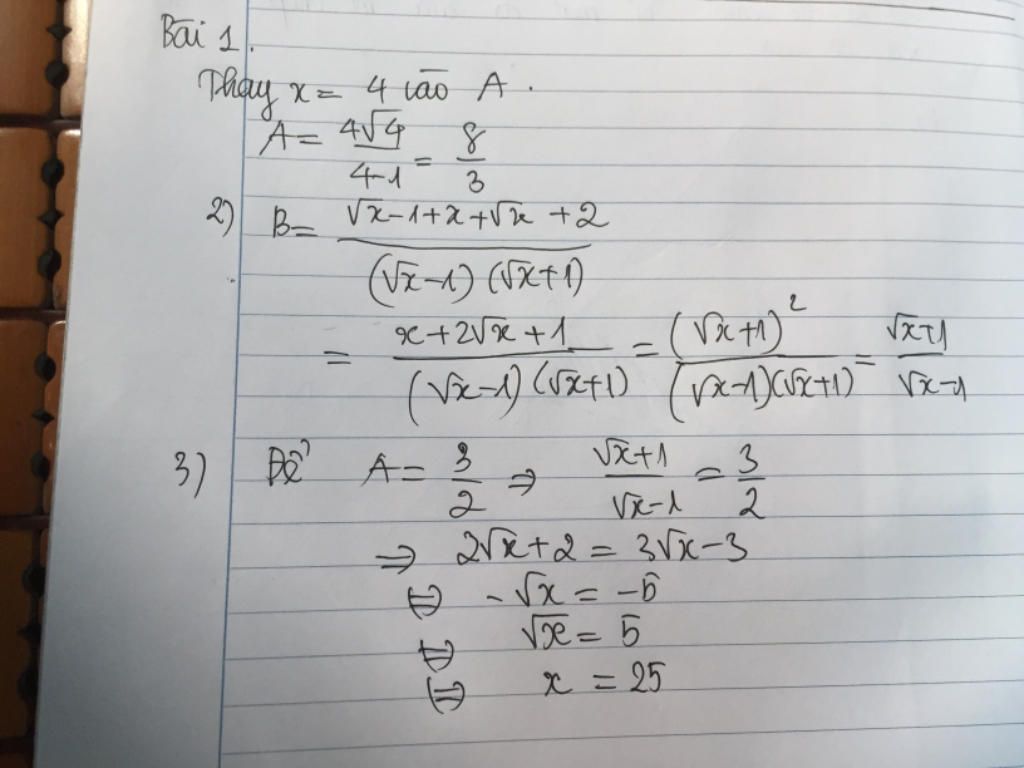 Bài 1.
Thay x = 4 vào A.
A = 4√4 / 4-1 = 8/3
2) B = √x - 1 + x + √x + 2 / (√x - 1)(√x + 1)
= x + 2√x + 1 / (√x - 1)(√x + 1) = (√x + 1)² / (√x - 1)(√x + 1) = √x + 1 / √x - 1
3) Để A = 3/2 ⇒ √x + 1 / √x - 1 = 3/2
⇒ 2√x + 2 = 3√x - 3
⇔ -√x = -5
⇔ √x = 5
⇔ x = 25